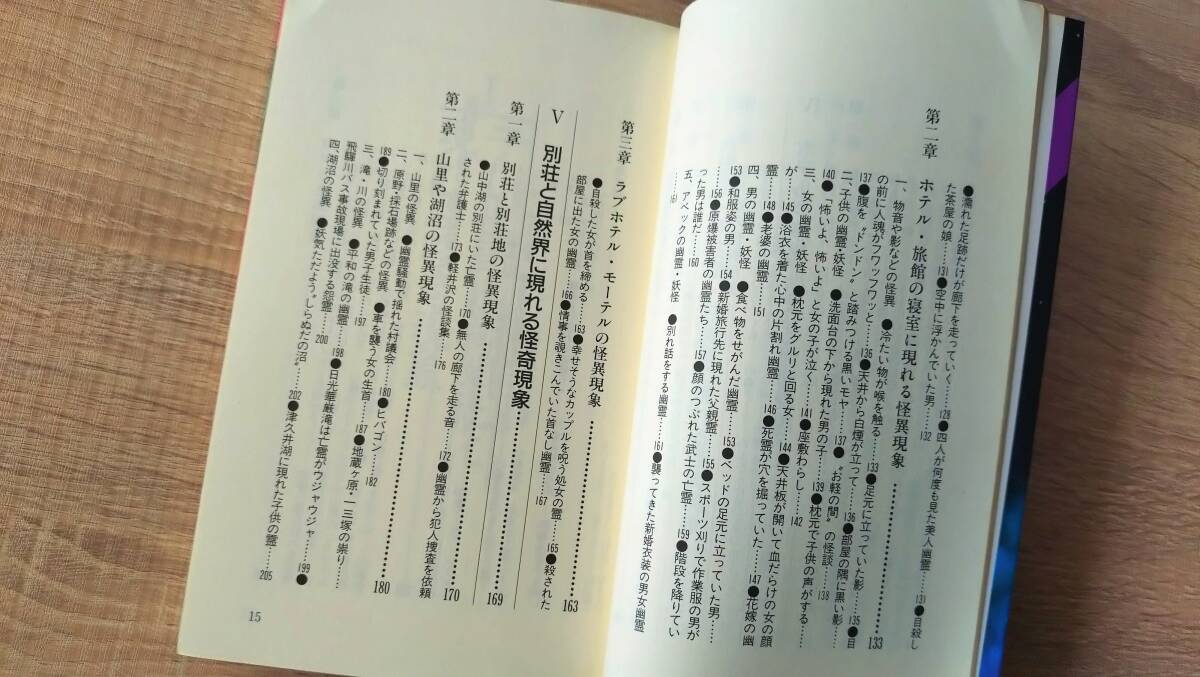 ●濡れた足跡だけが廊下を走っていく……128●四人が何度も見た美人幽霊……131●自殺し
た茶屋の娘……131●空中に浮かんでいた男……132
第二章　ホテル・旅館の寝室に現れる怪異現象……133
一、物音や影などの怪異　●冷たい物が喉を触る……133●足元に立っていた影……135●目
の前に人魂がフワッフワッと……136●天井から白煙が立って……136●部屋の隅に黒い影
137●腹を〝ドンドン〟と踏みつける黒いモヤ……137●〝お軽の間〟の怪談……138
二、子供の幽霊・妖怪　●洗面台の下から現れた男の子……139●枕元で子供の声がする……
140●「怖いよ、怖いよ」と女の子が泣く……141●座敷わらし……142
三、女の幽霊・妖怪　●枕元をグルリと回る女……144●天井板が開いて血だらけの女の顔
が……145●浴衣を着た心中の片割れ幽霊……146●死霊が穴を掘っていた……147●花嫁の幽
霊……148●老婆の幽霊……151
四、男の幽霊・妖怪　●食べ物をせがんだ幽霊……153●ベッドの足元に立っていた男……
153●和服姿の男……154●新婚旅行先に現れた父親霊……155●スポーツ刈りで作業服の男が
……156●原爆被害者の幽霊たち……157●顔のつぶれた武士の亡霊……159●階段を降りてい
った男は誰だ……160
五、アベックの幽霊・妖怪　●別れ話をする幽霊……161●襲ってきた新婚衣装の男女幽霊
161
第三章　ラブホテル・モーテルの怪異現象……163
●自殺した女が首を締める……163●幸せそうなカップルを呪う処女の霊……165●殺された
部屋に出た女の幽霊……166●情事を覗きこんでいた首なし幽霊……167
Ⅴ　別荘と自然界に現れる怪奇現象……169
第一章　別荘と別荘地の怪異現象……170
●山中湖の別荘にいた亡霊……170●無人の廊下を走る音……172●幽霊から犯人捜査を依頼
された弁護士……173●軽井沢の怪談集……176
第二章　山里や湖沼の怪異現象……180
一、山里の怪異　●幽霊騒動で揺れた村議会……180●ヒバゴン……182
二、原野・採石場跡などの怪異　●車を襲う女の生首……187●地蔵ヶ原・一三塚の祟り……
189●切り刻まれていた男子生徒……197
三、滝、川の怪異　●平和の滝の幽霊……198●日光華厳滝は亡霊がウジャウジャ……199●
飛騨川バス事故現場に出没する怨霊……200
四、湖沼の怪異　●妖気ただよう〝しらぬだの沼〟……202●津久井湖に現れた子供の霊……205
15